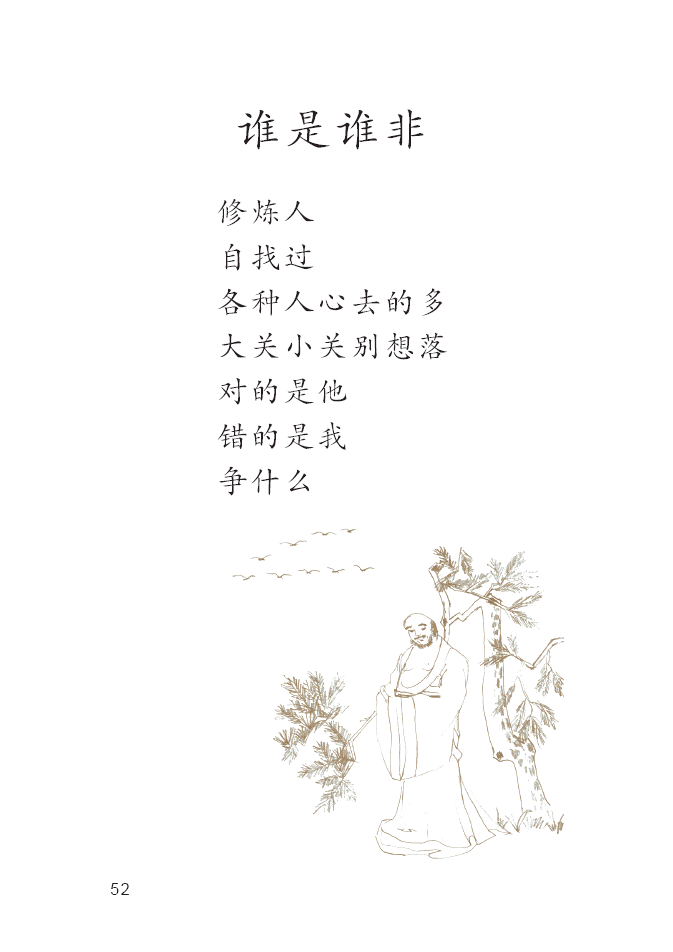 谁是谁非
修炼人
自找过
各种人心去的多
大关小关别想落
对的是他
错的是我
争什么
52